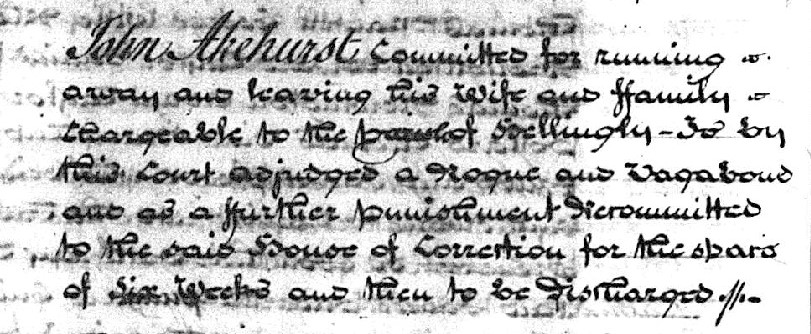 John Akehurst Committed for running
away and leaving his Wife and ffamily
Chargeable to the parish of Hellingly - Is by
this Court adjudged a Rogue and Vagabond
and as a ffurther punishment Recommitted
to the said House of Correction for the spars
of Six Weeks and then to be Discharged //.